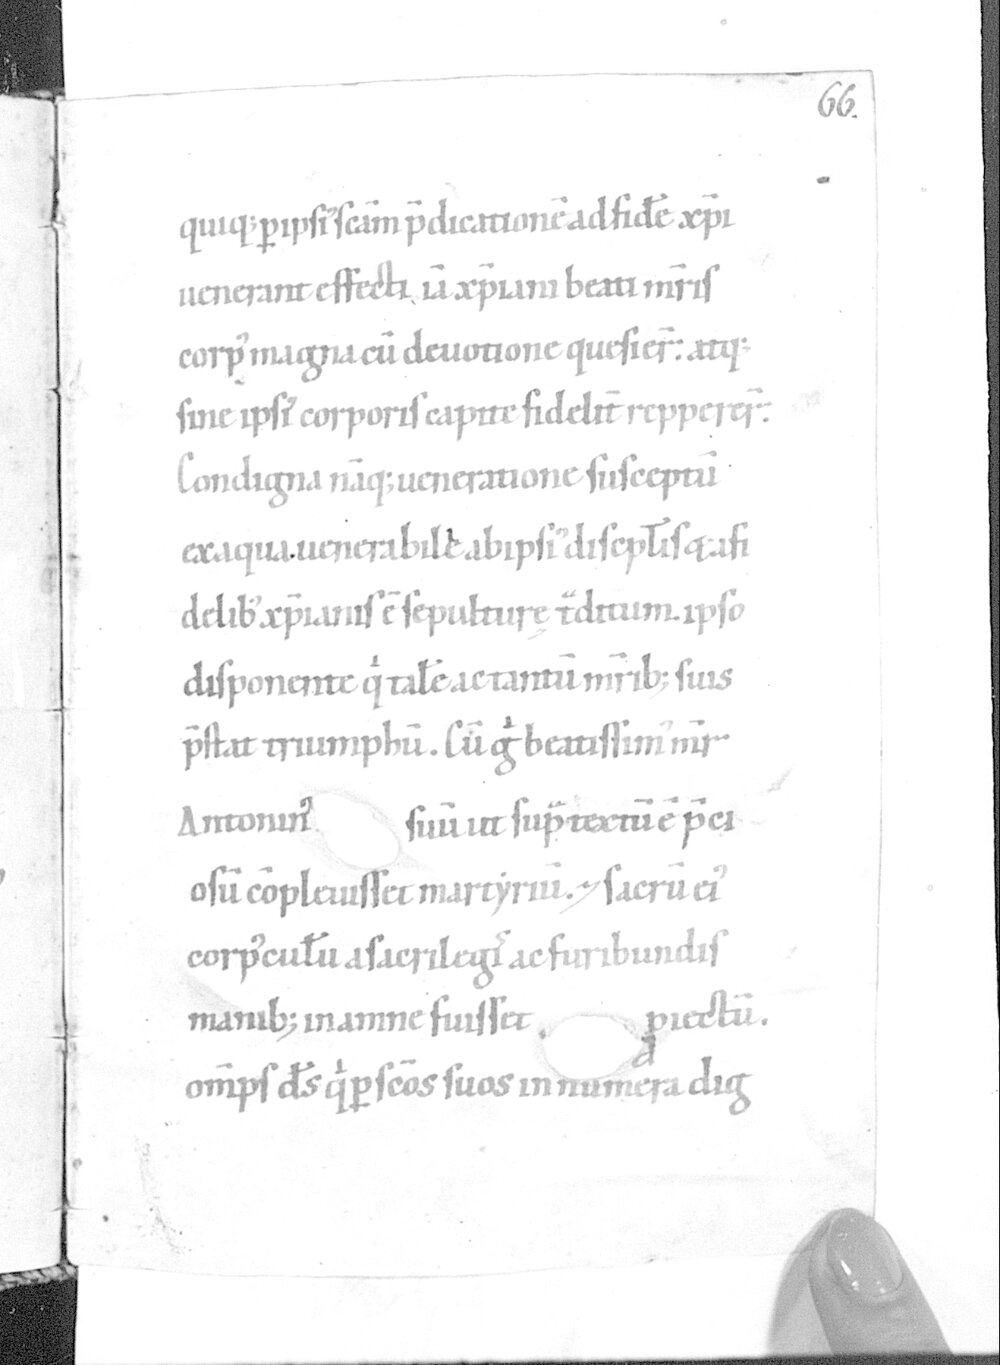 66.
quiq; ꝑ ipsiꝰ scām p̄dicationē ad fidē xp̄i
uenerant effecti iā xp̄iani beati mr̄is
corpꝰ magna cū deuotione quesier̄. atq;
sine ipsiꝰ corporis capite fidelit̄ reppererr̄.
Condigna nāq; ueneratione susceptū
ex aqua. uenerabilē ab ipsiꝰ discipl̄is q; a fi
delibꝰ xp̄ianis ē sepulturę t̄ditum. ipso
disponente qⁱ talē ac tantū mr̄ib; suis
p̄stat triumphū. Cū gⁱ beatissimꝰ mr̄
Antoninꝰ suū ut sup̄ textū ē p̄ci
osū cōpleuisset martẏriū. ⁊ sacrū eiꝰ
corpꝰcul̄u a sacrilegiꝰ ac furibundis
manib; in amne fuisset piectū.
om̄ps d̄s qⁱ ꝑ scōs suos in numera dig
d